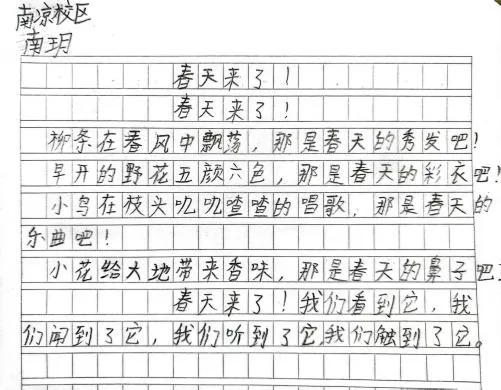 南凉校区
南玥
春天来了！
春天来了！
柳条在春风中飘荡，那是春天的秀发吧！
早开的野花五颜六色，那是春天的彩衣吧！
小鸟在枝头叽叽喳喳的唱歌，那是春天的
乐曲吧！
小花给大地带来香味，那是春天的鼻子吧！
春天来了！我们看到它，我
们闻到了它，我们听到了它，我们触到了它。